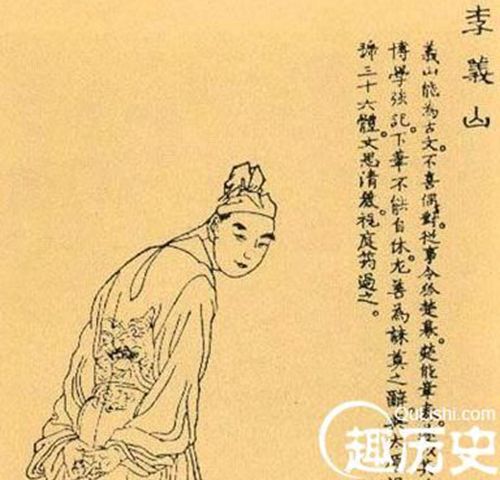 李義山
義山能為古文。不喜偶對。從事令狐楚幕。楚能章奏
博學強記。下筆不能自休。尤善為誄奠之辭。與太原
號三十六體。文思清視庭筠過之。
QuLishi.com
趣历史